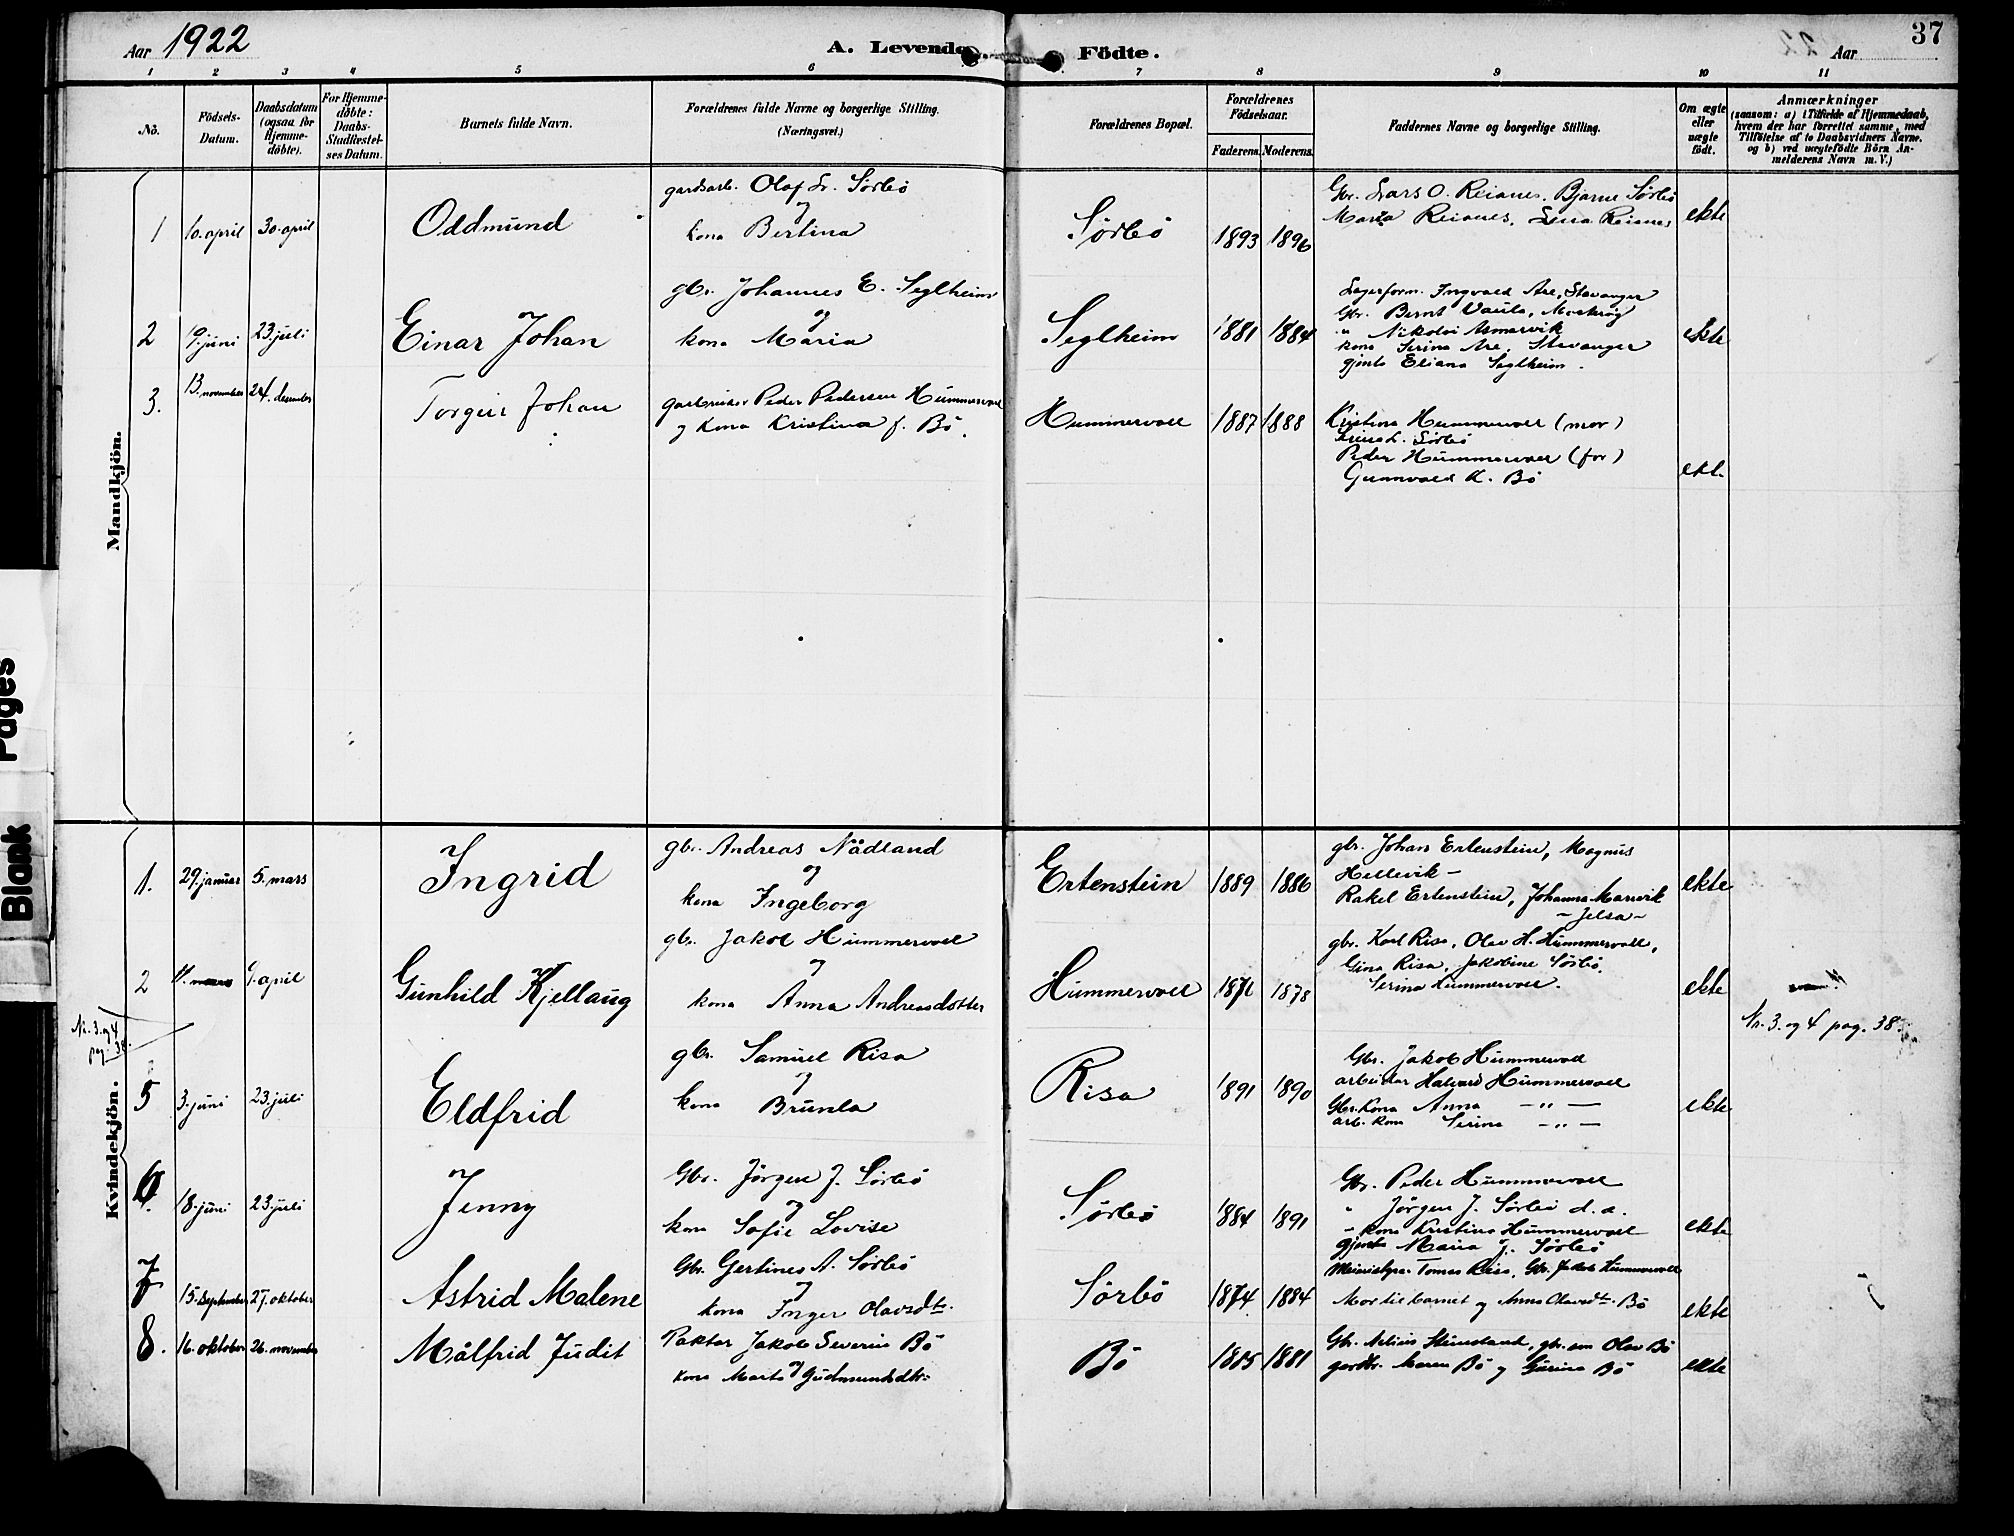 Aar 1922
A. Levende Födte.
22
Aar
37
1 2 3 4 5 6 7 8 9 10 11
No.
Födsels-Datum.
Daabsdatum (ogsaa for Hjemme-döbte).
For Hjemme-döbte: Daabs-Stadfæstel-ses Datum.
Barnets fulde Navn.
Forældrenes fulde Navne og borgerlige Stilling.
(Næringsvei.)
Forældrenes Bopæl.
Forældrenes Födselsaar.
Faderens. Moderens.
Faddernes Navne og borgerlige Stilling.
Om ægte eller uægte födt.
Anmærkninger
(saasom: a) i Tilfælde af Hjemmedaab,
hvem der har forrettet samme, med
Tilföielse af to Daabsvidners Navne.
og b) ved uægtefödte Börn An-
melderens Navn m. V.)
Mandkjön.
1 10. april 30. april Oddmund
gardsarb. Olaf L. Sørbö
og
kona Bertina
Sørbö 1893 1896
Gbr. Lars O. Reianes. Bjarne Sørbö
Marta Reianes. Lina Reianes
ekte
2 9. juni 23. juli Einar Johan
gbr. Johannes E. Seglheim
og
kona Maria
Seglheim 1881 1884
Lagerform. Ingvald Are, Stavanger
Gbr. Bernt Vaula,
" Nikolai
kona Serina Are, Stavanger
gjenta Eliana Seglheim.
ekte
3. 13. november 24. desember Torgeir Johan
gardbruker Peder Pedersen Hummervoll
og kona Kristina f. Bö.
Hummervoll 1887 1888
Kristina Hummervoll (mor)
Sørbö
Peder Hummervoll (far)
Gunnvald K. Bö
ekte
Kvindekjön.
1. 29. januar 5. mars Ingrid
gbr. Andreas Nådland
og
kona Ingeborg
Ertenstein 1889 1886
gbr. Johan Ertenstein, Magnus
Hellevik -
Rakel Ertenstein, Johanna Marvik
- Jelsa -
ekte
2 11. mars 9. april Gunhild Kjellaug
gbr. Jakob Hummervoll
og
kona Anna Andreasdotter
Hummervoll 1871 1878
gbr. Karl Risa, Olav H. Hummervoll,
Gina Risa, Jakobine Sørbö,
Serina Hummervoll.
ekte
Nr. 3. og 4 pag. 38.
Nr. 3. og 4 pag. 38.
5 3. juni 23. juli Eldfrid
gbr. Samuel Risa
og
kona Brunla
Risa 1891 1890
Gbr. Jakob Hummervoll
arbeidar Halvard Hummervoll
Gbr. kona Anna — " —
arb. kona Serina — " —
ekte
6. 18. juni 23. juli Jenny
Gbr. Jörgen J. Sørbö
og
kona Sofie Lovise
Sørbö 1884 1891
Gbr. Peder Hummervoll
" Jörgen J. Sørbö d. a.
" kona Kristina Hummervoll
gjenta Maria J. Sørbö
ekte
7 15. september 27. oktober Astrid Malene
Gbr. Gertines A. Sørbö
og
kona Inger Olavsdtr.
Sørbö 1874 1884
Tomas Risa, Gbr. Jakob Hummervoll
Mor til barnet og Anna Olavsdtr. Bö
ekte
8. 16. oktober 26. november Målfrid Judit
Paktar Jakob Severin Bö
og
kona Marta Gudmundsdtr.
Bö 1885 1881
Gbr. Stensland, gbr. son Olav Bö
gardbr. Maren Bö og Gurina Bö
ekte
Blank Pages